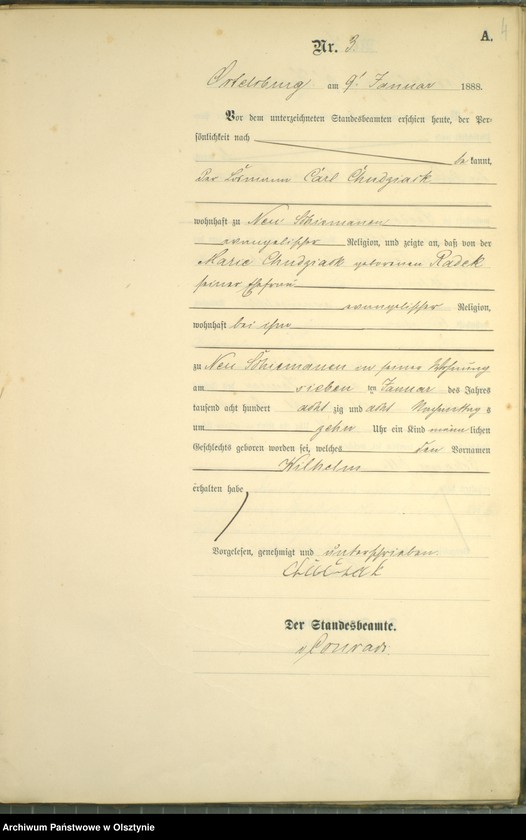 A.
4
Nr. 3
Ortelsburg am 9t Januar 1888.
Vor dem unterzeichneten Standesbeamten erschien heute, der Per-
sönlichkeit nach
be kannt,
der Losmann Carl Chudziack
wohnhaft zu Neu Schiemanen
evangelischer Religion, und zeigte an, daß von der
Marie Chudziack geborenen Radek
seiner Ehefrau
evangelischer Religion,
wohnhaft bei ihm
zu Neu Schiemanen in seiner Wohnung
am sieben ten Januar des Jahres
tausend acht hundert acht zig und acht Nachmittag s
um zehn Uhr ein Kind männ lichen
Geschlechts geboren worden sei, welches den Vornamen
Wilhelm
erhalten habe
Vorgelesen, genehmigt und unterschrieben.
Der Standesbeamte.
Conrad.
Archiwum Państwowe w Olsztynie